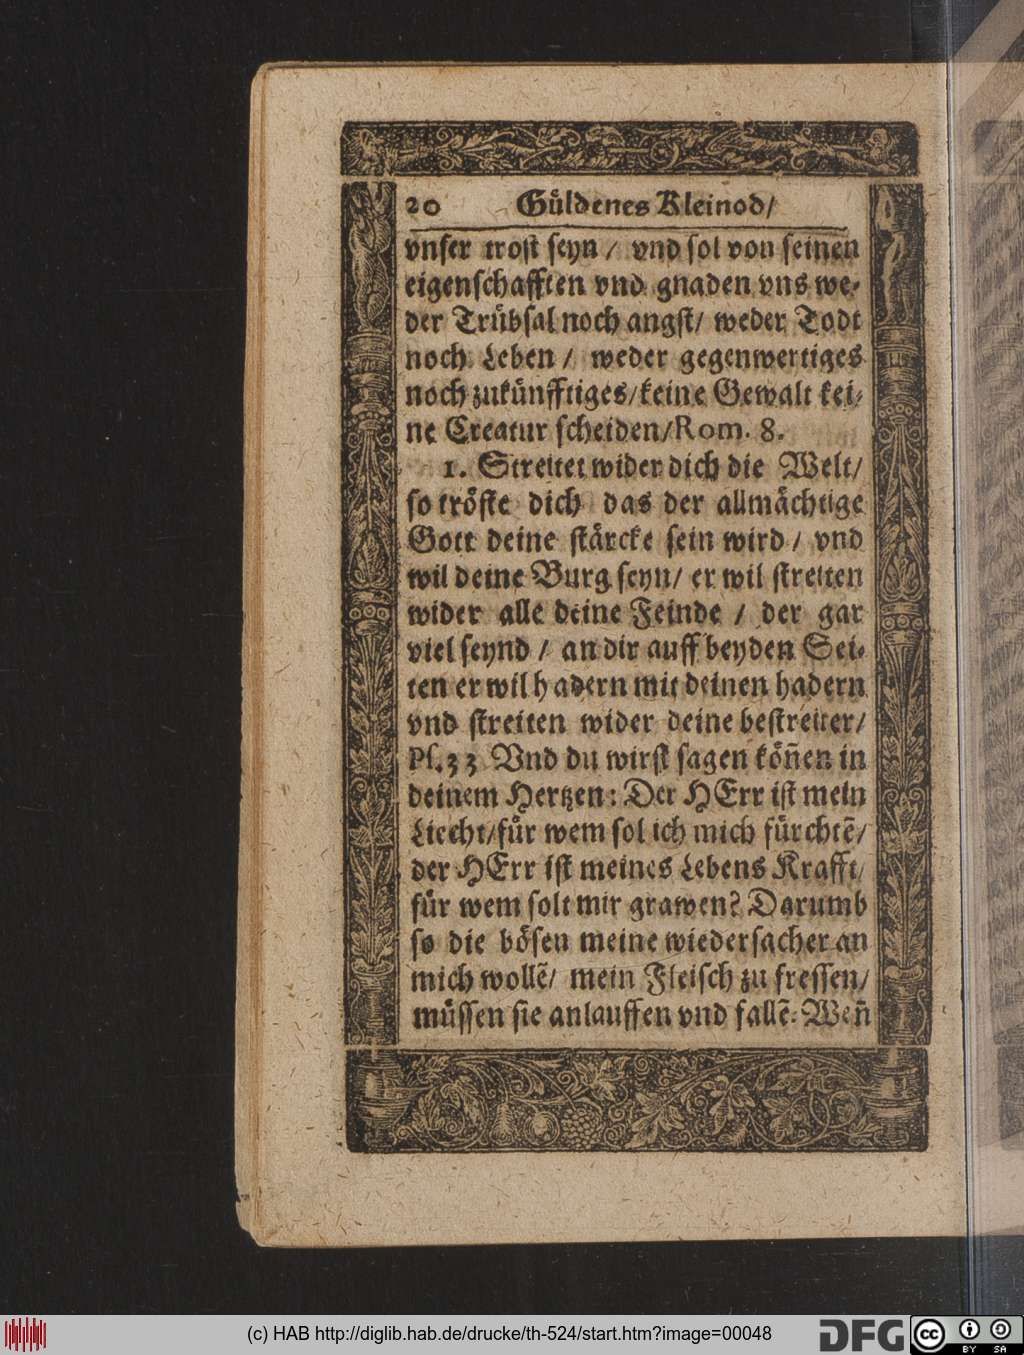 20 Güldenes Kleinod/
vnser trost seyn / vnd sol von seinen
eigenschafften vnd gnaden vns we-
der Trübsal noch angst/ weder Todt
noch Leben / weder gegenwertiges
noch zukünfftiges/keine Gewalt kei-
ne Creatur scheiden/Rom. 8.
1. Streitet wider dich die Welt/
so tröste dich das der allmächtige
Gott deine stärcke sein wird / vnd
wil deine Burg seyn/ er wil streiten
wider alle deine Feinde / der gar
viel seynd / an dir auff beyden Sei-
ten er wil hadern mit deinen hadern
vnd streiten wider deine bestreiter/
Ps. 33 Vnd du wirst sagen köñen in
deinem Hertzen: Der HErr ist mein
Liecht/für wem sol ich mich fürchtẽ/
der HErr ist meines Lebens Krafft/
für wem solt mir grawen? Darumb
so die bösen meine wiedersacher an
mich wollẽ/ mein Fleisch zu fressen/
müssen sie anlauffen vnd fallẽ: Weñ
(c) HAB http://diglib.hab.de/drucke/th-524/start.htm?image=00048
DFG
cc BY SA